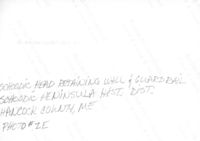 SCHOODIC HEAD RETAINING WALL & GUARDRAIL
SCHOODIC PENINSULA HIST. DIST.
HANCOCK COUNTY, ME
PHOTO # 2E